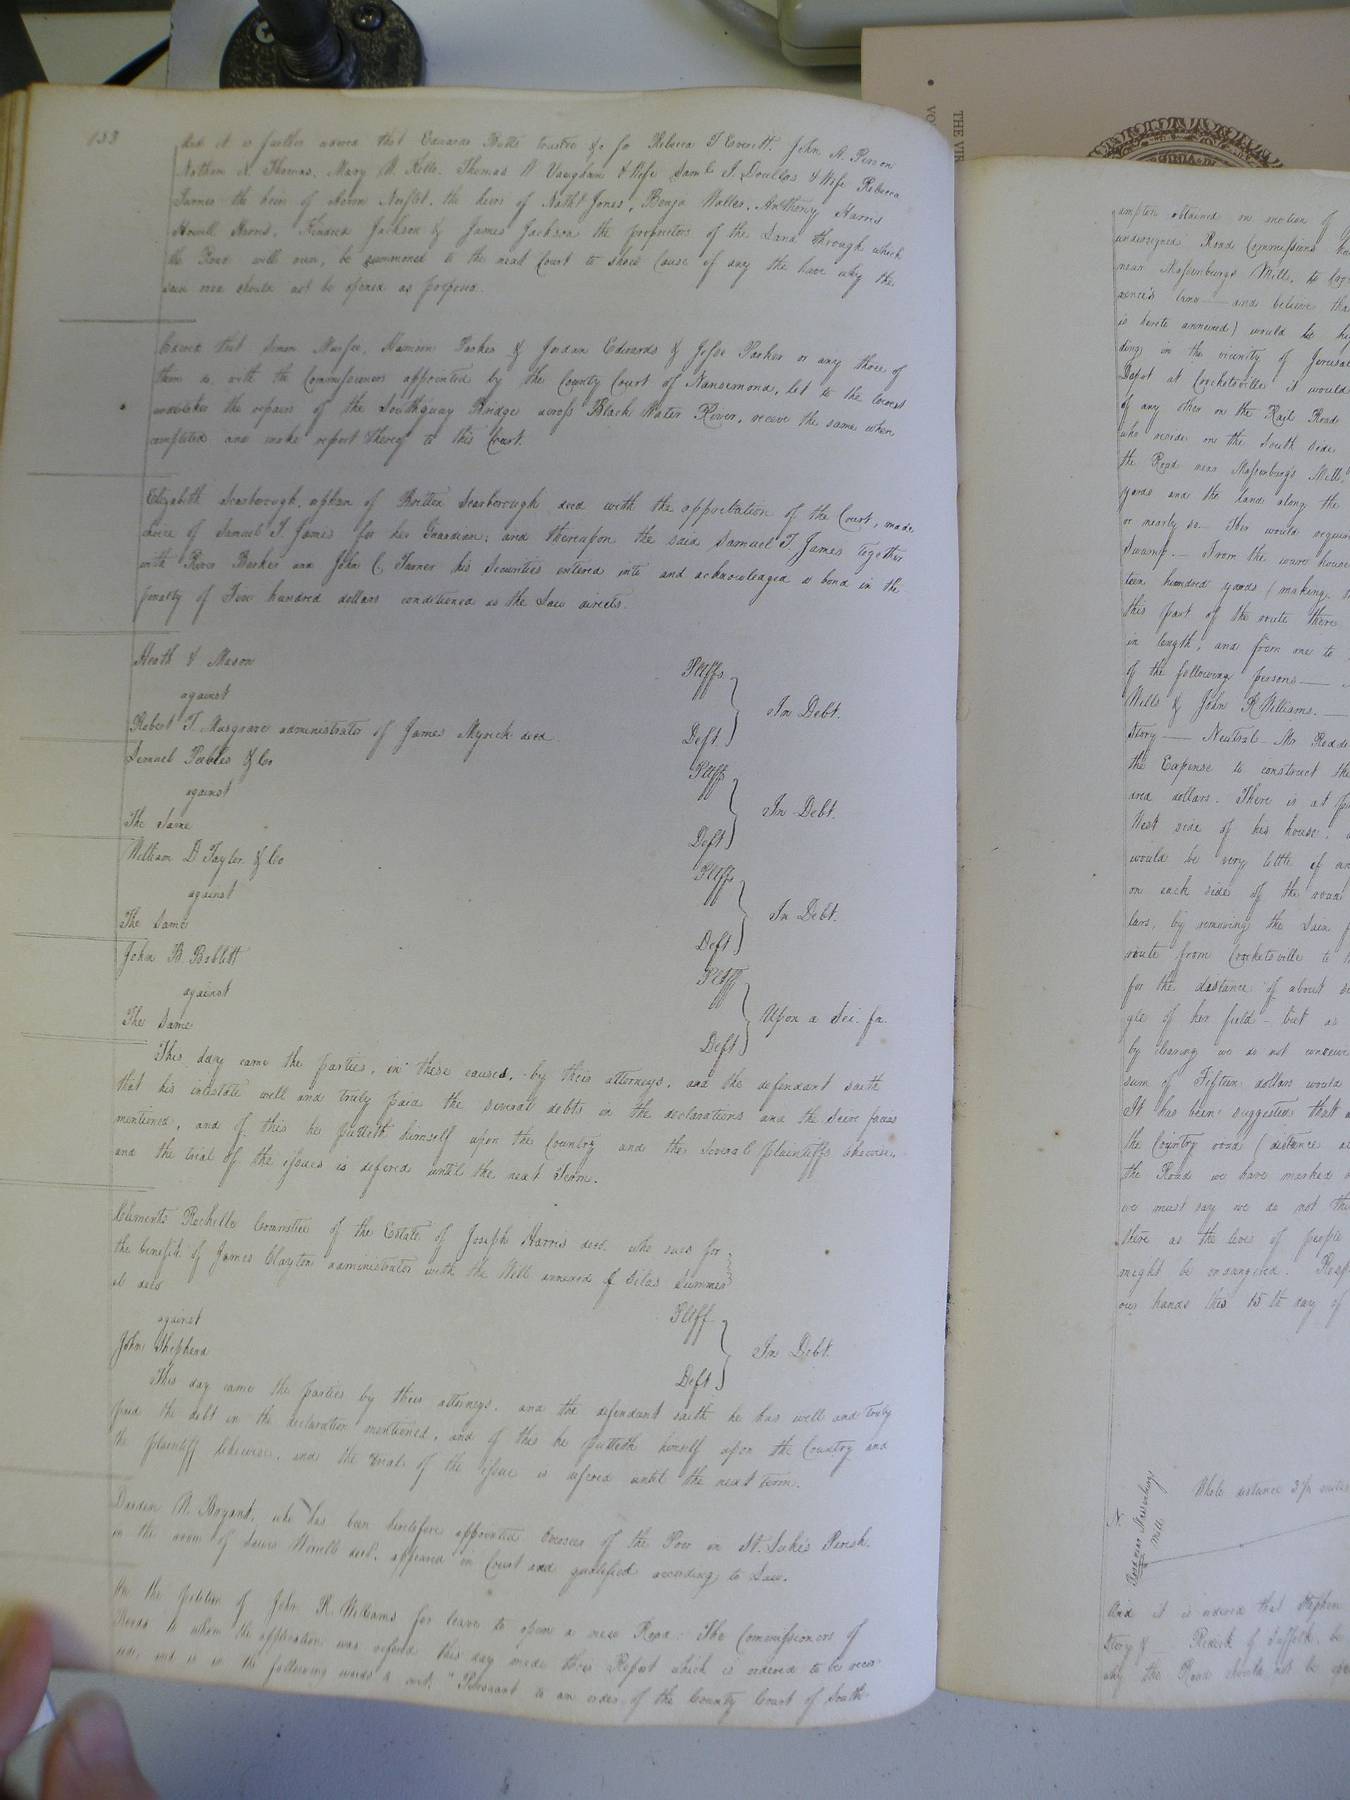 133
And it is further ordered that Edwards Butts trustee &c for Rebecca T Everett, John A. Person
Nathan R. Thomas, Mary W. Kello, Thomas W Vaughan & Wife Saml J. Douglas & Wife Rebecca
Turner the heirs of Aaron Norfleet, the heirs of Nathl Jones, Benja Waller, Anthony Harris
Howell Harris, Kindred Jackson & James Jackson the proprietors of the Land through which
the Road will run, be summoned to the next Court to shew Cause if any the have why the
said road should not be opened as proposed.
Ordered that Simon Murfee, Hamson Parker & Jordan Edwards & Jesse Parker or any three of
them do with the Commissioners appointed by the County Court of Nansemond, let to the lowest
undertaker the repairs of the Southquay Bridge across Black Water River, receive the same when
completed and make report thereof to this Court.
Elizabeth Scarborough, orphan of Britten Scarborough decd with the approbation of the Court, made
choice of Samuel T. James for her Guardian; and thereupon the said Samuel T. James together
with River Barker and John C. Turner his Securities entered into and acknowledged a bond in the
penalty of Five hundred dollars conditioned as the Law directs.
Heath & Mason Pltffs
against In Debt.
Robert T. Musgrave administrator of James Myrick decd. Deft
Lemuel Peebles & Co Pltffs
against In Debt.
The Same Deft
William D Taylor & Co Pltffs
against In Debt.
The Same Deft
John B. Bobbitt Pltff
against Upon a Sci. fa.
The Same Deft
This day came the parties, in these causes, by their attorneys, and the defendant saith
that his intestate well and truly paid the several debts in the declarations and the Scire facias
mentioned, and of this he putteth himself upon the Country and the several plaintiffs likewise,
and the trial of the issues is defered until the next Term.
Clements Rochelle Committee of the Estate of Joseph Harris decd. who sues for
the benefit of James Clayton administrator with the Will annexed of Silas Summer
el decd
against Pltff
John Shepherd In Debt.
Deft
This day came the parties by their attorneys, and the defendant saith he has well and truly
paid the debt in the declaration mentioned, and of this he putteth himself upon the Country and
the plaintiff likewise, and the trial of the issue is defered until the next term.
Darden W. Bryant, who has been heretofore appointed Overseer of the Poor in St. Luke's Parish.
in the room of Lewis Worrell decd. appeared in Court and qualified according to Law.
On the petition of John R. Williams for leave to open a new Road: The Commissioners of
Roads to whom the application was refered this day made their Report which is ordered to be recor-
ded, and is in the following words to wit: "Pursuant to an order of the County Court of South-
THE VIR
VO
ampton obtained on motion of
undersigned Road Commissions
near Massenburgs Mill, to
land — and believe tha
is hereto annexed) would be
ding in the vicinity of Jerusa
Depot at Crocketsville it would
of any other on the Rail Road
who reside on the South side
the Road near Massenburgs Mill,
yards and the land along the
or nearly so — This would requir
Swamp. — From the ware house
teen hundred yards (making
this part of the route there
in length, and from one to
of the following persons —
Wells & John R Williams. —
Story — Neutral — Mr Redd
the Expense to construct the
dred dollars. There is at p
West side of his house,
would be very little if an
on each side of the road
lars, by removing the said f
route from Crocketsville to
for the distance of about
gle of her field — but as
by clearing we do not conceive
sum of Fifteen dollars would
It has been suggested that a
the Country road (distance
the Road we have marked
we must say we do not thi
there as the lives of people
might be endangered. Resp
our hands this 15th day of
Whole distance 3½ miles
Road near Massenburgs
Mill
And it is ordered that Stephen
Story & Riddick of Suffolk, be
why the Road should not be ope